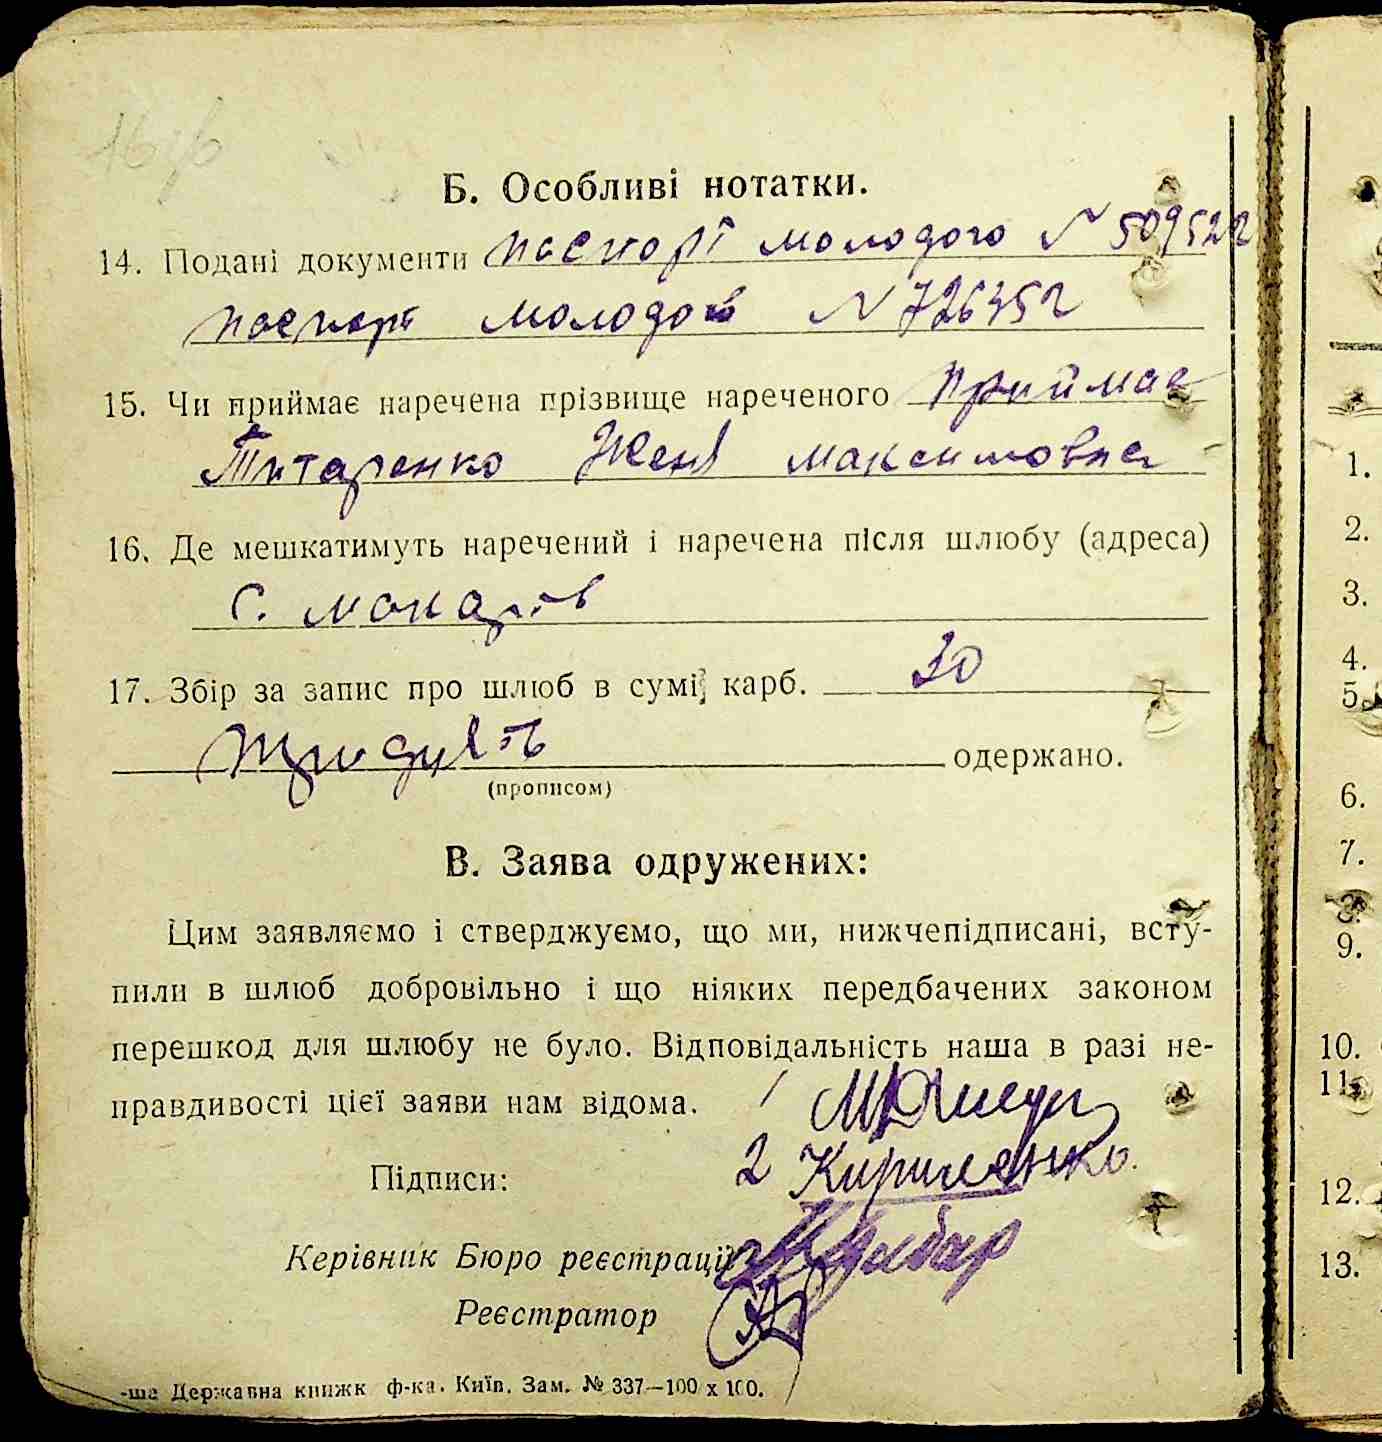 Б. Особливі нотатки.
14. Подані документи паспорт молодого N 509522
паспорт молодої N 726352
15. Чи приймає наречена прізвище нареченого приймає
Титаренко Женя Максимовна
16. Де мешкатимуть наречений і наречена після шлюбу (адреса)
с. Макарів
17. Збір за запис про шлюб в сумі карб. 30
тридцять одержано.
(прописом)
В. Заява одружених:
Цим заявляємо і стверджуємо, що ми, нижчепідписані, всту-
пили в шлюб добровільно і що ніяких передбачених законом
перешкод для шлюбу не було. Відповідальність наша в разі не-
правдивості цієї заяви нам відома. 1
Підписи: 2 Кириленко.
Керівник Бюро реєстрації
Реєстратор
-ша Державна книжк ф-ка. Київ. Зам. № 337—100 x 100.
1.
2.
3.
4.
5.
6.
7.
8.
9.
10.
11.
12.
13.